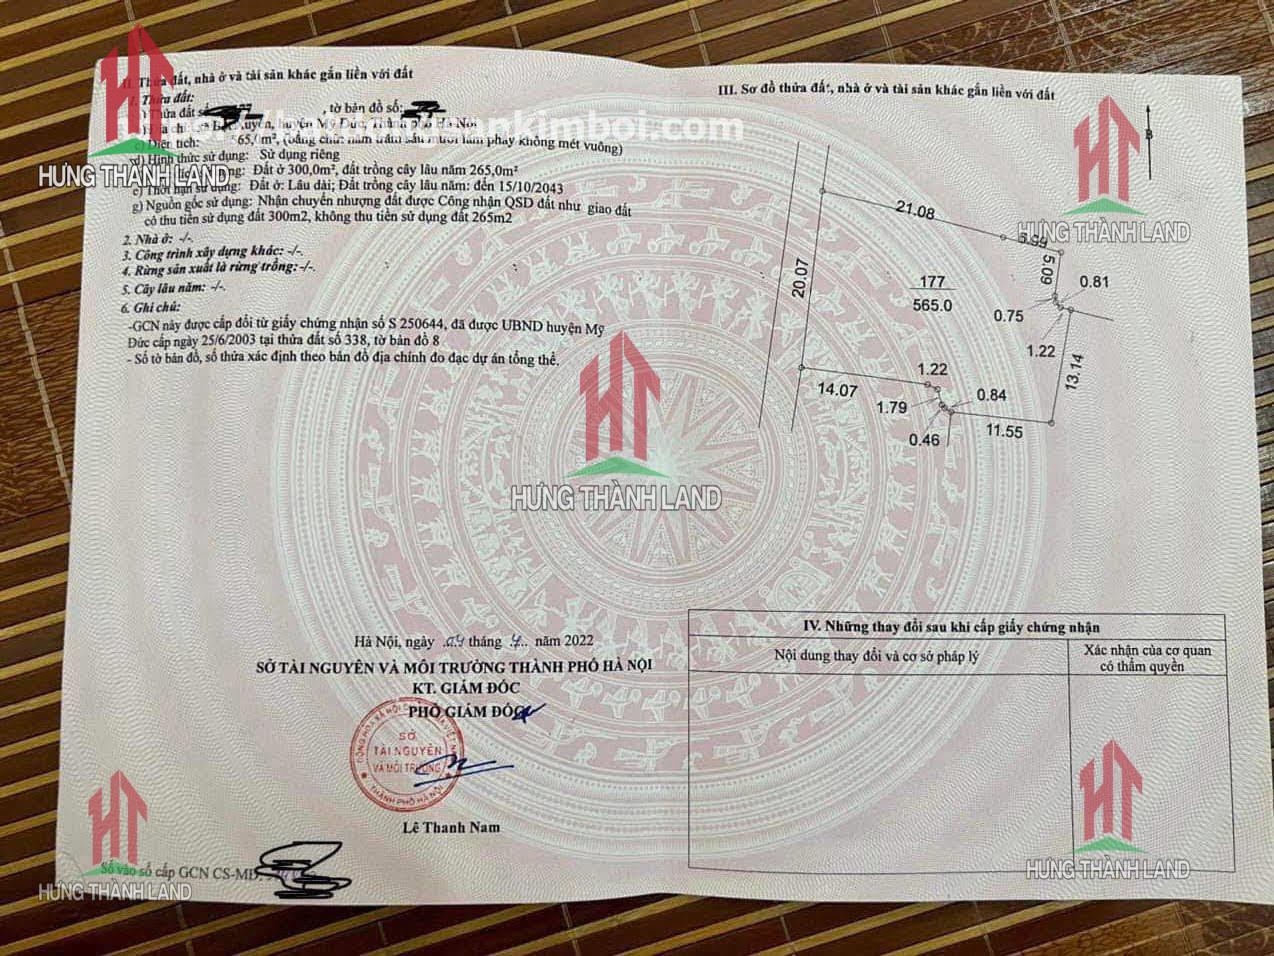 II. Thửa đất, nhà ở và tài sản khác gắn liền với đất
1. Thửa đất:
Thửa đất số , tờ bản đồ số:
huyện Mỹ Đức, Thành phố Hà Nội
c) Diện tích: 565,0m², (bằng chữ: năm trăm sáu mươi lăm phẩy không mét vuông)
d) Hình thức sử dụng: Sử dụng riêng
Đất ở 300,0m², đất trồng cây lâu năm 265,0m²
e) Thời hạn sử dụng: Đất ở: Lâu dài; Đất trồng cây lâu năm: đến 15/10/2043
g) Nguồn gốc sử dụng: Nhận chuyển nhượng đất được Công nhận QSD đất như giao đất
có thu tiền sử dụng đất 300m2, không thu tiền sử dụng đất 265m2
2. Nhà ở: -/-.
3. Công trình xây dựng khác: -/-.
4. Rừng sản xuất là rừng trồng: -/-.
5. Cây lâu năm: -/-.
6. Ghi chú:
-GCN này được cấp đổi từ giấy chứng nhận số S 250644, đã được UBND huyện Mỹ
Đức cấp ngày 25/6/2003 tại thửa đất số 338, tờ bản đồ 8
- Số tờ bản đồ, số thửa xác định theo bản đồ địa chính đo đạc dự án tổng thể.
Hà Nội, ngày 04 tháng 7 năm 2022
SỞ TÀI NGUYÊN VÀ MÔI TRƯỜNG THÀNH PHỐ HÀ NỘI
KT. GIÁM ĐỐC
PHÓ GIÁM ĐỐC
SỞ
TÀI NGUYÊN
VÀ MÔI TRƯỜNG
THÀNH PHỐ HÀ NỘI
Lê Thanh Nam
Số vào sổ cấp GCN CS-MĐ:
III. Sơ đồ thửa đất, nhà ở và tài sản khác gắn liền với đất
B
21.08
5.09
0.81
20.07
177
565.0
0.75
1.22
13.14
1.22
14.07
0.84
1.79
11.55
0.46
IV. Những thay đổi sau khi cấp giấy chứng nhận
Nội dung thay đổi và cơ sở pháp lý
Xác nhận của cơ quan
có thẩm quyền
HƯNG THÀNH LAND
HƯNG THÀNH LAND
HƯNG THÀNH LAND
HƯNG THÀNH LAND
HƯNG THÀNH LAND